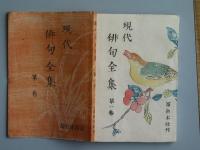 現代
俳句全集
第一巻
現代
俳句全集
第一巻